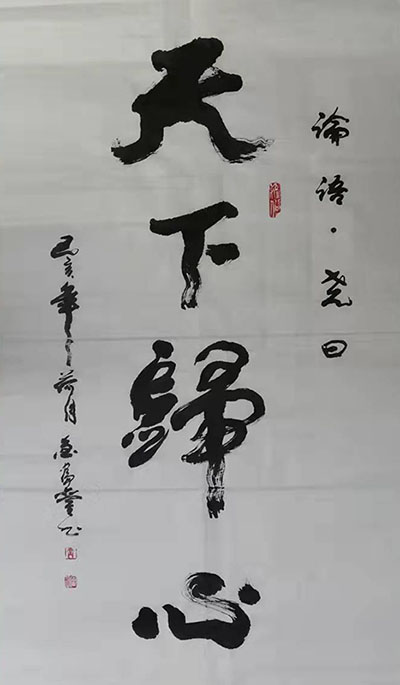 论语·尧曰
天下歸心
己亥年荷月